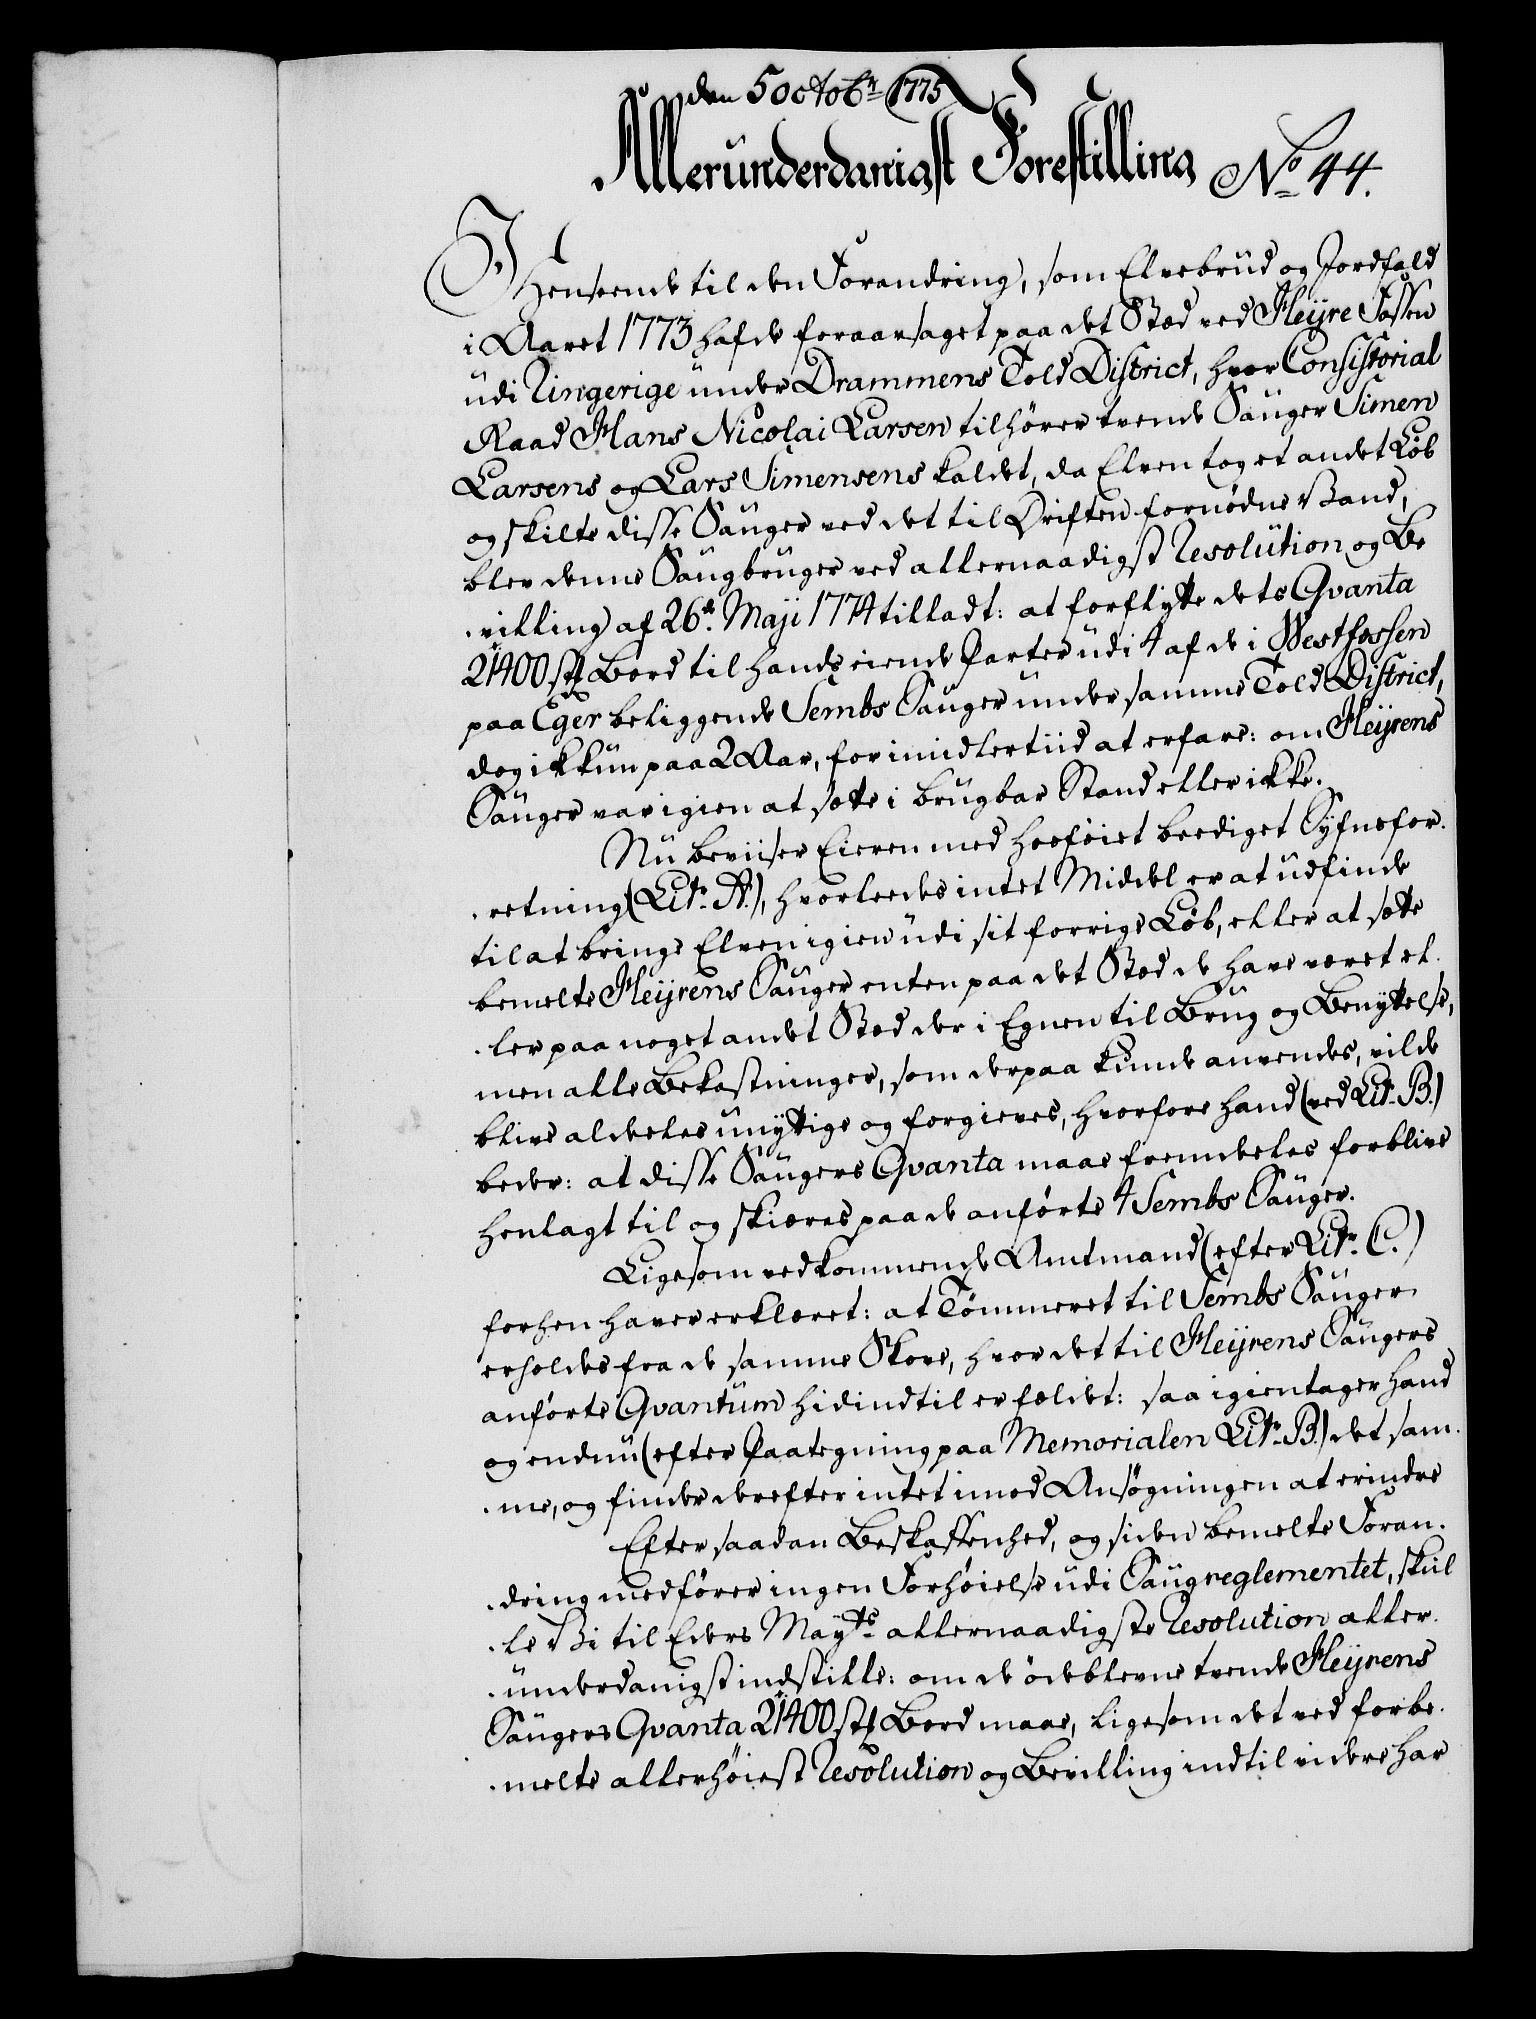 den 5 Octobr 1775
Allerunderdanigst Forestilling No 44.
I Henseende til den Forandring, som Elvebrud og Jordfald
i Aaret 1773 hafde foraarsaget paa det Stæd ved Heijre Fossen
udi Ringerige under Drammens Told District, hvor Consistorial
Raad Hans Nicolai Larsen tilhører tvende Sauger Simen
Larsens og Lars Simensens kaldet, da Elven tog et andet Løb
og skilte disse Sauger ved det til Driften fornødne Vand,
blev denne Saugbruger ved allernaadigst Resolution og Be
villing af 26de Maji 1774 tilladt: at forflytte dets Qvanta
21400 stk Bord til hands eiende Parter udi 4 af de i Westfossen
paa Eger beliggende Sembs Sauger under samme Told District,
dog ikkun paa 2 Aar, for imidlertiid at erfare: om Heijrens
Sauger var igien at sætte i brugbar Stand eller ikke.
Nu beviiser Eieren med hosføiet beediget Syfnsfor-
retning (Litr. A.), hvorleedes intet Middel er at udfinde
til at bringe Elven igien udi sit forrige Løb, eller at sætte
bemelte Heijrens Sauger enten paa det Stæd de have været el-
ler paa noget andet Stæd der i Egnen til Brug og Benyttelse,
men alle Bekostninger, som derpaa kunde anvendes, vilde
blive aldeeles unyttige og forgieves, hvorfore hand (ved Litr. B.)
beder: at disse Saugers Qvanta maae fremdeeles forblive
henlagt til og skiæres paa de anførte 4 Sembs Sauger.
Ligesom vedkommende Amtmand (efter Litr. C.)
forhen haver erklæret: at Tømmeret til Sembs Sauger
erholdes fra de samme Skove, hvor det til Heijrens Saugers
anførte Qvantum hidindtil er fældet: saa igientager hand
og endnu (efter Paategning paa Memorialen Litr. B.) det sam-
me, og finder derefter intet imod Ansøgningen at erindre
Efter saadan Beskaffenhed, og siden bemelte Foran-
dring medfører ingen Forhøielse udi Saugreglementet, skul
le Vi til Eders Mayts allernaadigste Resolution aller-
underdanigst indstille: om de ødeblevne tvende Heijrens
Saugers Qvanta 21400 stk Bord maae, ligesom det ved forbe-
melte allerhøiest Resolution og Bevilling indtil videre har